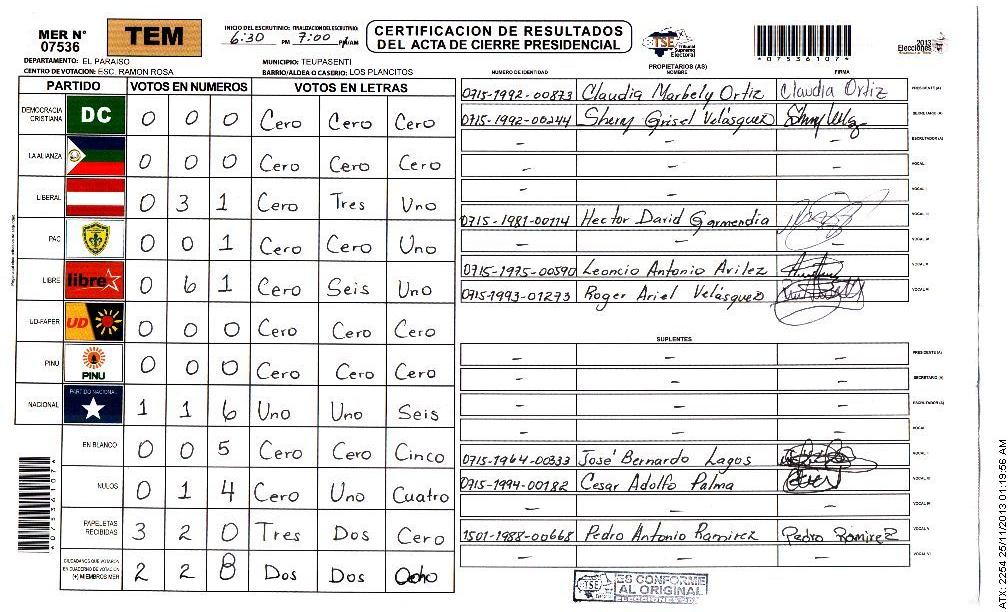 MER N°
07536
TEM
INICIO DEL ESCRUTINIO: FINALIZACION DEL ESCRUTINIO:
6:30 PM 7:00 PM/AM
CERTIFICACION DE RESULTADOS
DEL ACTA DE CIERRE PRESIDENCIAL
TSE Tribunal Supremo Electoral
*07536107*
2013
Elecciones
DEPARTAMENTO: EL PARAISO
MUNICIPIO: TEUPASENTI
CENTRO DE VOTACION: ESC. RAMON ROSA
BARRIO/ALDEA O CASERIO: LOS PLANCITOS
PARTIDO VOTOS EN NUMEROS VOTOS EN LETRAS
DEMOCRACIA CRISTIANA DC 0 0 0 Cero Cero Cero
LA ALIANZA 0 0 0 Cero Cero Cero
LIBERAL 0 3 1 Cero Tres Uno
PAC 0 0 1 Cero Cero Uno
LIBRE libre 0 6 1 Cero Seis Uno
UD-FAPER UD 0 0 0 Cero Cero Cero
PINU PINU 0 0 0 Cero Cero Cero
NACIONAL PARTIDO NACIONAL 1 1 6 Uno Uno Seis
EN BLANCO 0 0 5 Cero Cero Cinco
NULOS 0 1 4 Cero Uno Cuatro
PAPELETAS RECIBIDAS 3 2 0 Tres Dos Cero
CIUDADANOS QUE VOTARON EN CUADERNO DE VOTACION (+) MIEMBROS MER 2 2 8 Dos Dos Ocho
*07536107*
PROPIETARIOS (AS)
NUMERO DE IDENTIDAD NOMBRE FIRMA
0715-1992-00873 Claudia Marbely Ortiz Claudia Ortiz PRESIDENTE(A)
0715-1992-00244 Sherry Grisel Velásquez SECRETARIO (A)
- - - ESCRUTADOR (A)
- - - VOCAL
- - - VOCAL I
0715-1981-00114 Hector David Garmendia VOCAL III
- - - VOCAL IV
0715-1975-00590 Leoncio Antonio Avilez VOCAL V
0715-1993-01273 Roger Ariel Velásquez VOCAL VI
SUPLENTES
- - - PRESIDENTE (A)
- - - SECRETARIO (A)
- - - ESCRUTADOR (A)
- - - VOCAL
0715-1964-00333 José Bernardo Lagos VOCAL I
0715-1994-00182 Cesar Adolfo Palma VOCAL III
- - - VOCAL IV
1501-1988-00668 Pedro Antonio Ramirez Pedro Ramirez VOCAL V
- - - VOCAL VI
TSE ES CONFORME
AL ORIGINAL
ELECCIONES 20
ATX: 2254 25/11/2013 01:19:56 AM